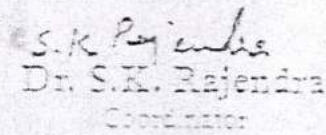 S.K Rajendra
Dr. S.K. Rajendra
Coordinator